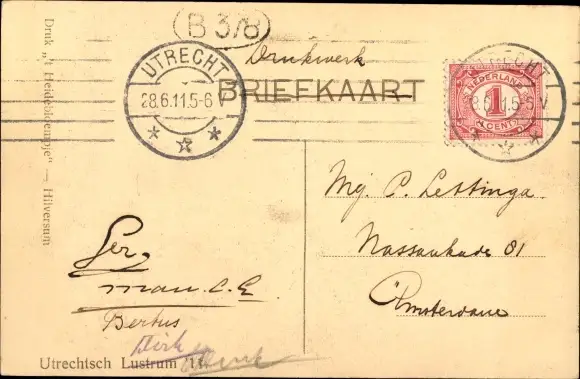 B 3/8
Drukwerk
UTRECHT
28.6.11.5-6 V
BRIEFKAART
NEDERLAND
1
CENT
UTRECHT
28.6.11.5-6 V
Druk „'t Heidebloempje" — Hilversum
Mej. P. Lettinga
Nassaukade 81
Amsterdam
Ger
man. C. E
Bertus
Dirk
Utrechtsch Lustrum '11.